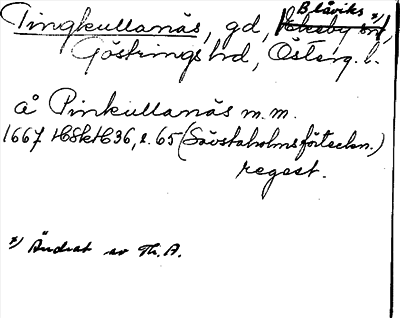 Tingkullanäs, gd, Blåviks x)
Göstrings hd, Österg. l.
å Pinkullanäs m.m.
1667 HSkH36, s. 65 (Sävstaholmsförteckn.)
regest.
x) Ändrat av Th. A.